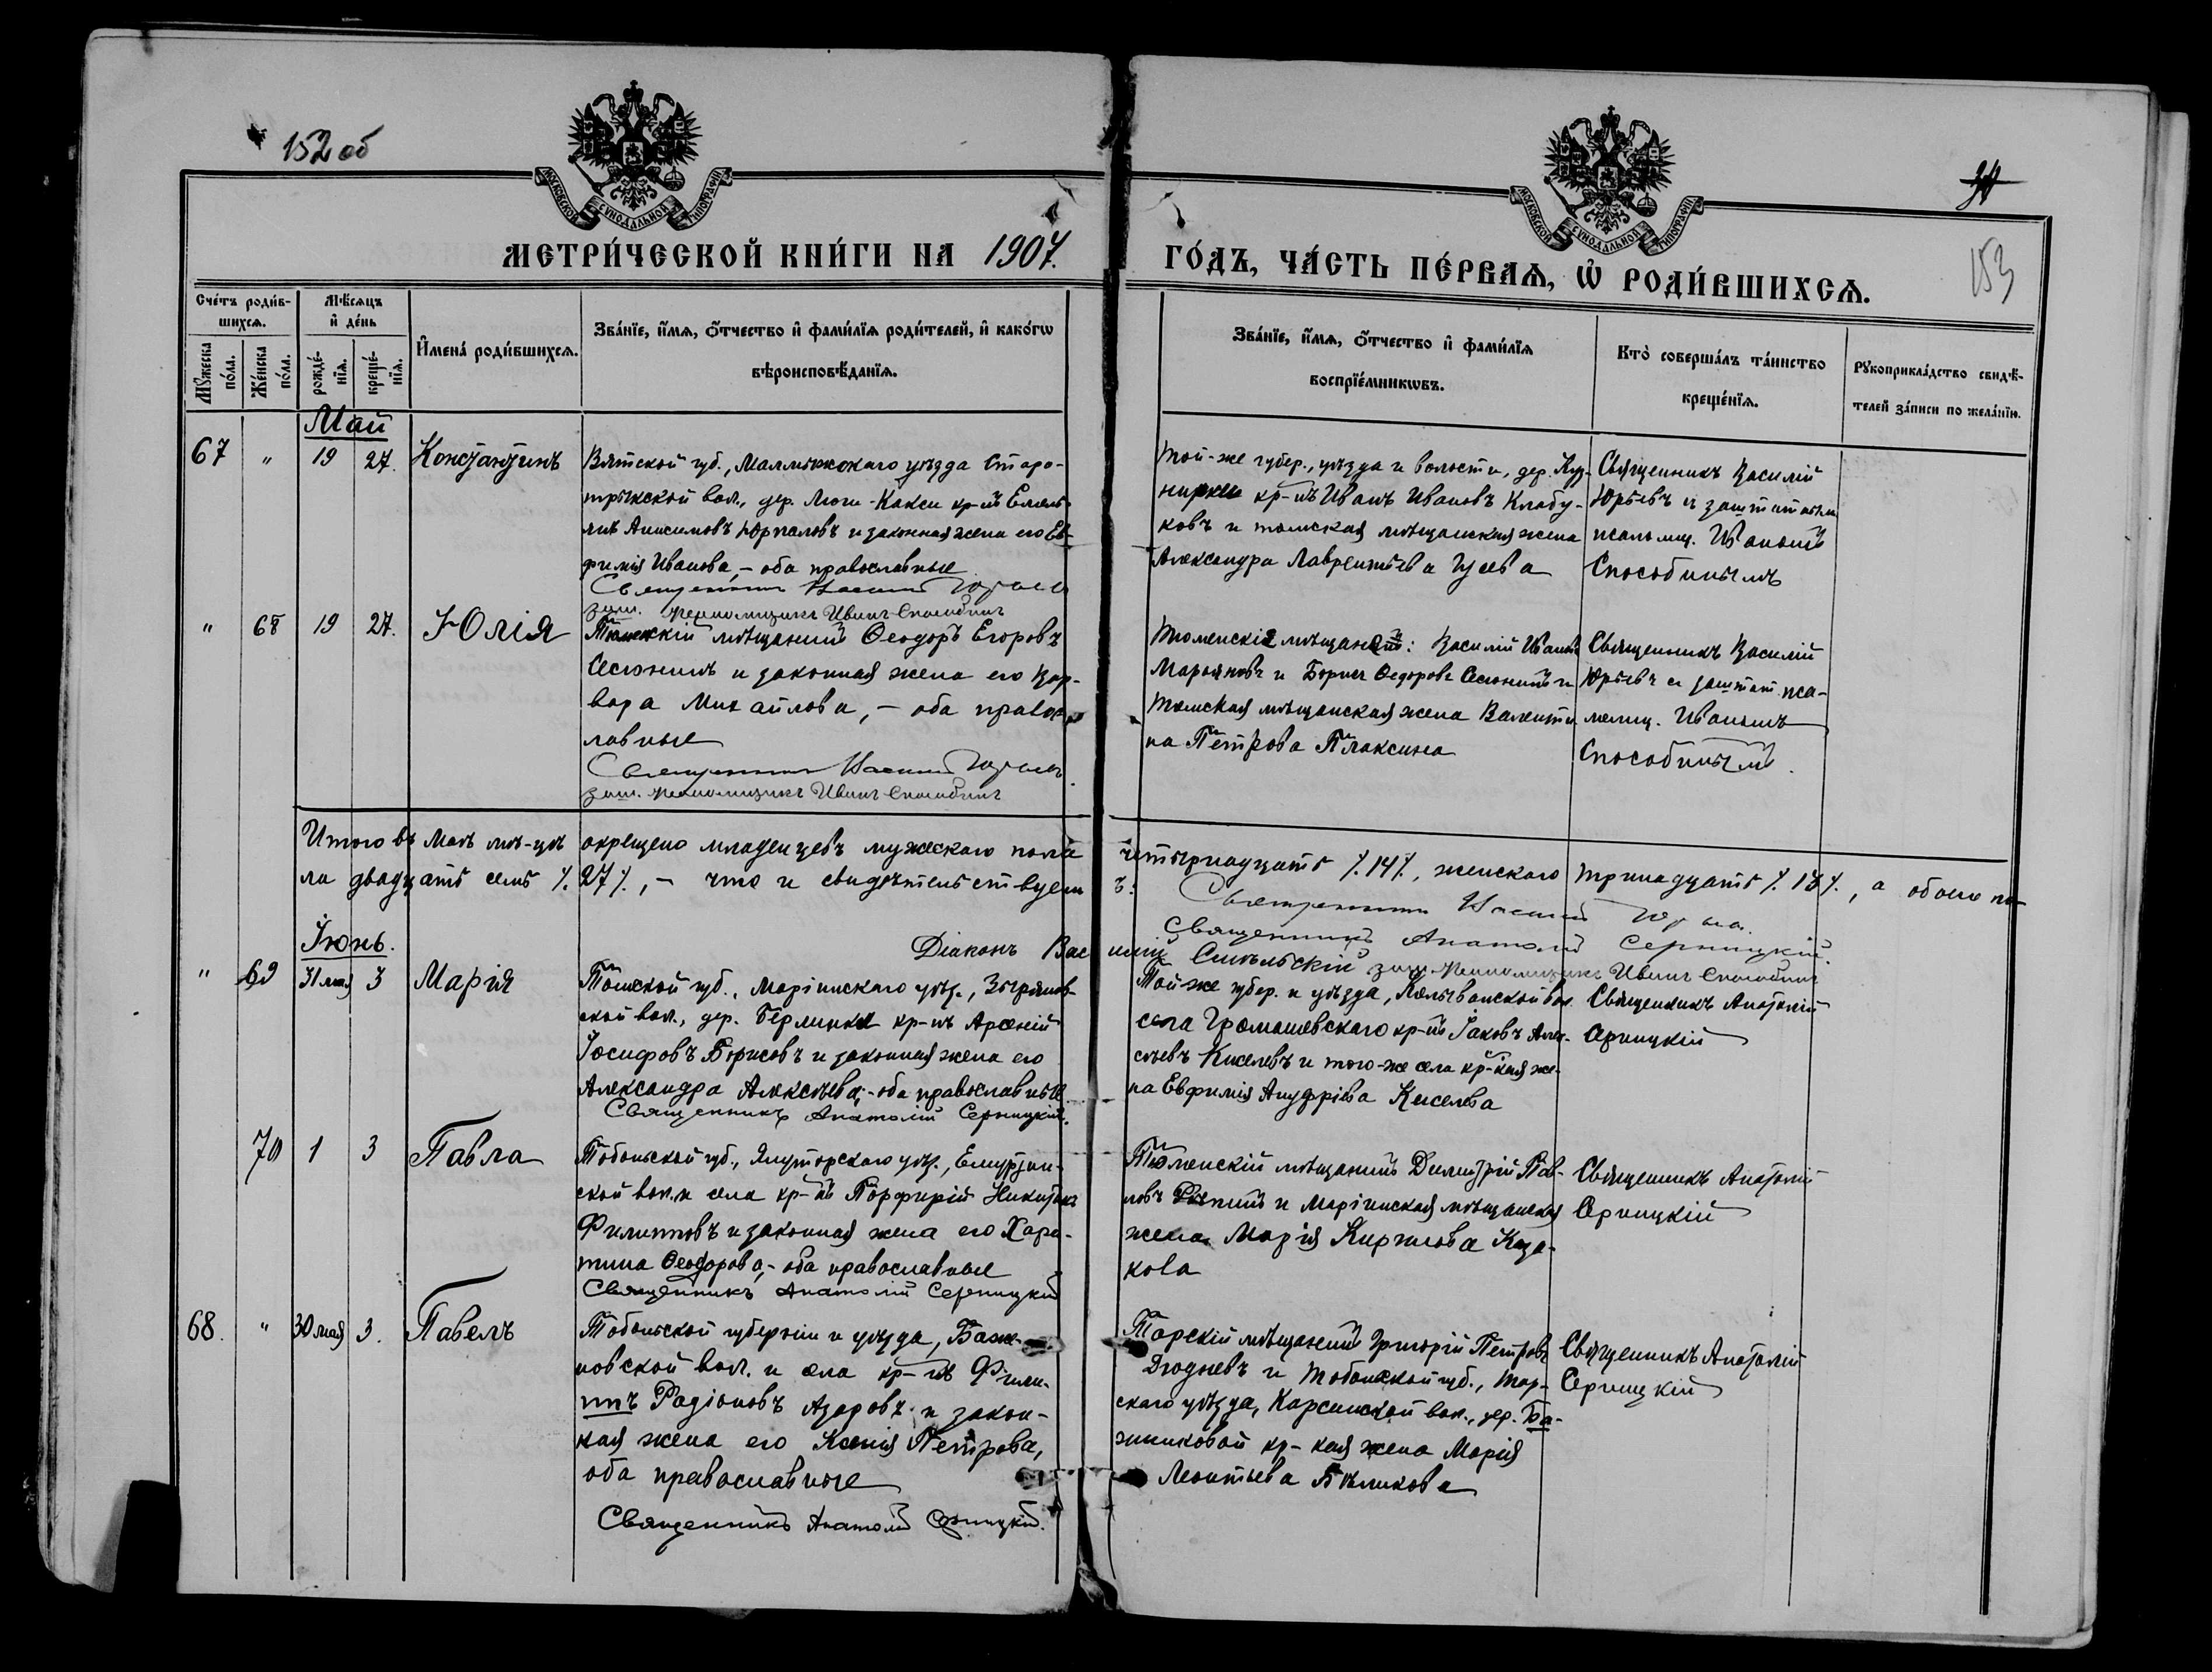 152 об
30
153
МОСКОВСКОЙ СѴНОДАЛЬНОЙ ТИПОГРАФІИ
МОСКОВСКОЙ СѴНОДАЛЬНОЙ ТИПОГРАФІИ
МЕТРИ́ЧЕСКОЙ КНИ́ГИ НА 1907.
ГО́ДЪ, ЧА́СТЬ ПЕ́РВАЯ, Ѡ РОДИ́ВШИХСЯ.
Сче́тъ роди́в-
шихся.
Мꙋ́жеска по́ла.
Же́нска по́ла.
Мѣ́сяцъ
и де́нь
рожде́-
нїя.
креще́-
нїя.
И҆мена̀ роди́вшихся.
Зва́нїе, и҆́мя, ѻ҆́тчество и҆ фами́лїя роди́телей, и҆ како́гѡ
вѣроисповѣ́данїя.
Зва́нїе, и҆́мя, ѻ҆́тчество и҆ фами́лїя
воспрїе́мникѡвъ.
Кто̀ соверша́лъ та́инство
креще́нїя.
Рꙋкоприкла́дство свидѣ́-
телей за́писи по жела́нїю.
Май
67 " 19 27. Константинъ
Вятской губ., Малмыжскаго уѣзда Старо-
трыжской вол., дер. Люги-Какси кр-нъ Емель-
янъ Анисимовъ Юрпаловъ и законная жена его Ев-
фимія Иванова, – оба православные
Священникъ Василій Юрьевъ
заш. псаломщикъ Иванъ Способинъ
Той-же губер., уѣзда и волости, дер.
кр-нъ Иванъ Ивановъ Клабу-
ковъ и томская мѣщанская жена
Александра Лаврентьева Гусева
Священникъ Василій
Юрьевъ съ заштатнымъ
псаломщ. Иваномъ
Способинымъ
" 68 19 27. Юлія
Тюменскій мѣщанинъ Ѳеодоръ Егоровъ
Сесюнинъ и законная жена его Вар-
вара Михайлова, – оба правос-
лавные
Священникъ Василій Юрьевъ.
заш. псаломщикъ Иванъ Способинъ
Тюменскіе мѣщане: Василій Иванов
Марьяновъ и Борисъ Ѳедоровъ Сесюнинъ и
Томская мѣщанская жена Валенти-
на Петрова Плаксина
Священникъ Василій
Юрьевъ съ заштат. пса-
ломщ. Иваномъ
Способинымъ.
Итого въ Маѣ мѣ-цѣ окрещено младенцевъ мужескаго пола четырнадцать /.14/., женскаго тринадцать /.13/., а обоего по-
ла двадцать семь /.27/., – что и свидѣтельствуемъ:
Священникъ Василій Юрьевъ.
Священникъ Анатолій Серницкій.
Діаконъ Василій Смѣльскій заш. псаломщикъ Иванъ Способинъ
Іюнь.
" 69 31 мая 3 Марія
Томской губ., Маріинскаго уѣз., Зырянов-
ской вол., дер. Берлинки кр-нъ Арсеній
Іосифовъ Борисовъ и законная жена его
Александра Алексѣева, – оба православные.
Священникъ Анатолій Серницкій.
Той же губер. и уѣзда, Колыванской вол.
села Громашевскаго кр-нъ Іаковъ Алек-
сѣевъ Киселевъ и того-же села кр-кая же-
на Евфимія Ануфріева Киселева
Священникъ Анатолій
Серницкій
70 1 3 Павла
Тобольской губ., Ялуторскаго уѣз., Емуртлин-
ской вол. и села кр-нъ Порфирій Никитинъ
Филипповъ и законная жена его Хари-
тина Ѳеодорова, – оба православные
Священникъ Анатолій Серницкій
Тюменскій мѣщанинъ Димитрій Пав-
ловъ и Маріинская мѣщанская
жена Марія Кириллова Каза-
кова
Священникъ Анатолій
Серницкій
68. " 30 мая 3. Павелъ
Тобольской губерніи и уѣзда, Баже-
новской вол. и села кр-нъ Фили-
ппъ Радіоновъ Азаровъ и закон-
ная жена его Ксенія Петрова,
оба православные
Священникъ Анатолій Серницкій.
Тарскій мѣщанинъ Григорій Петровъ
Дюдневъ и Тобольской губ., Тар-
скаго уѣзда, Карсинской вол., дер. Ба-
жениковой кр-кая жена Марія
Леонтьева Бѣликова
Священникъ Анатолій
Серницкій